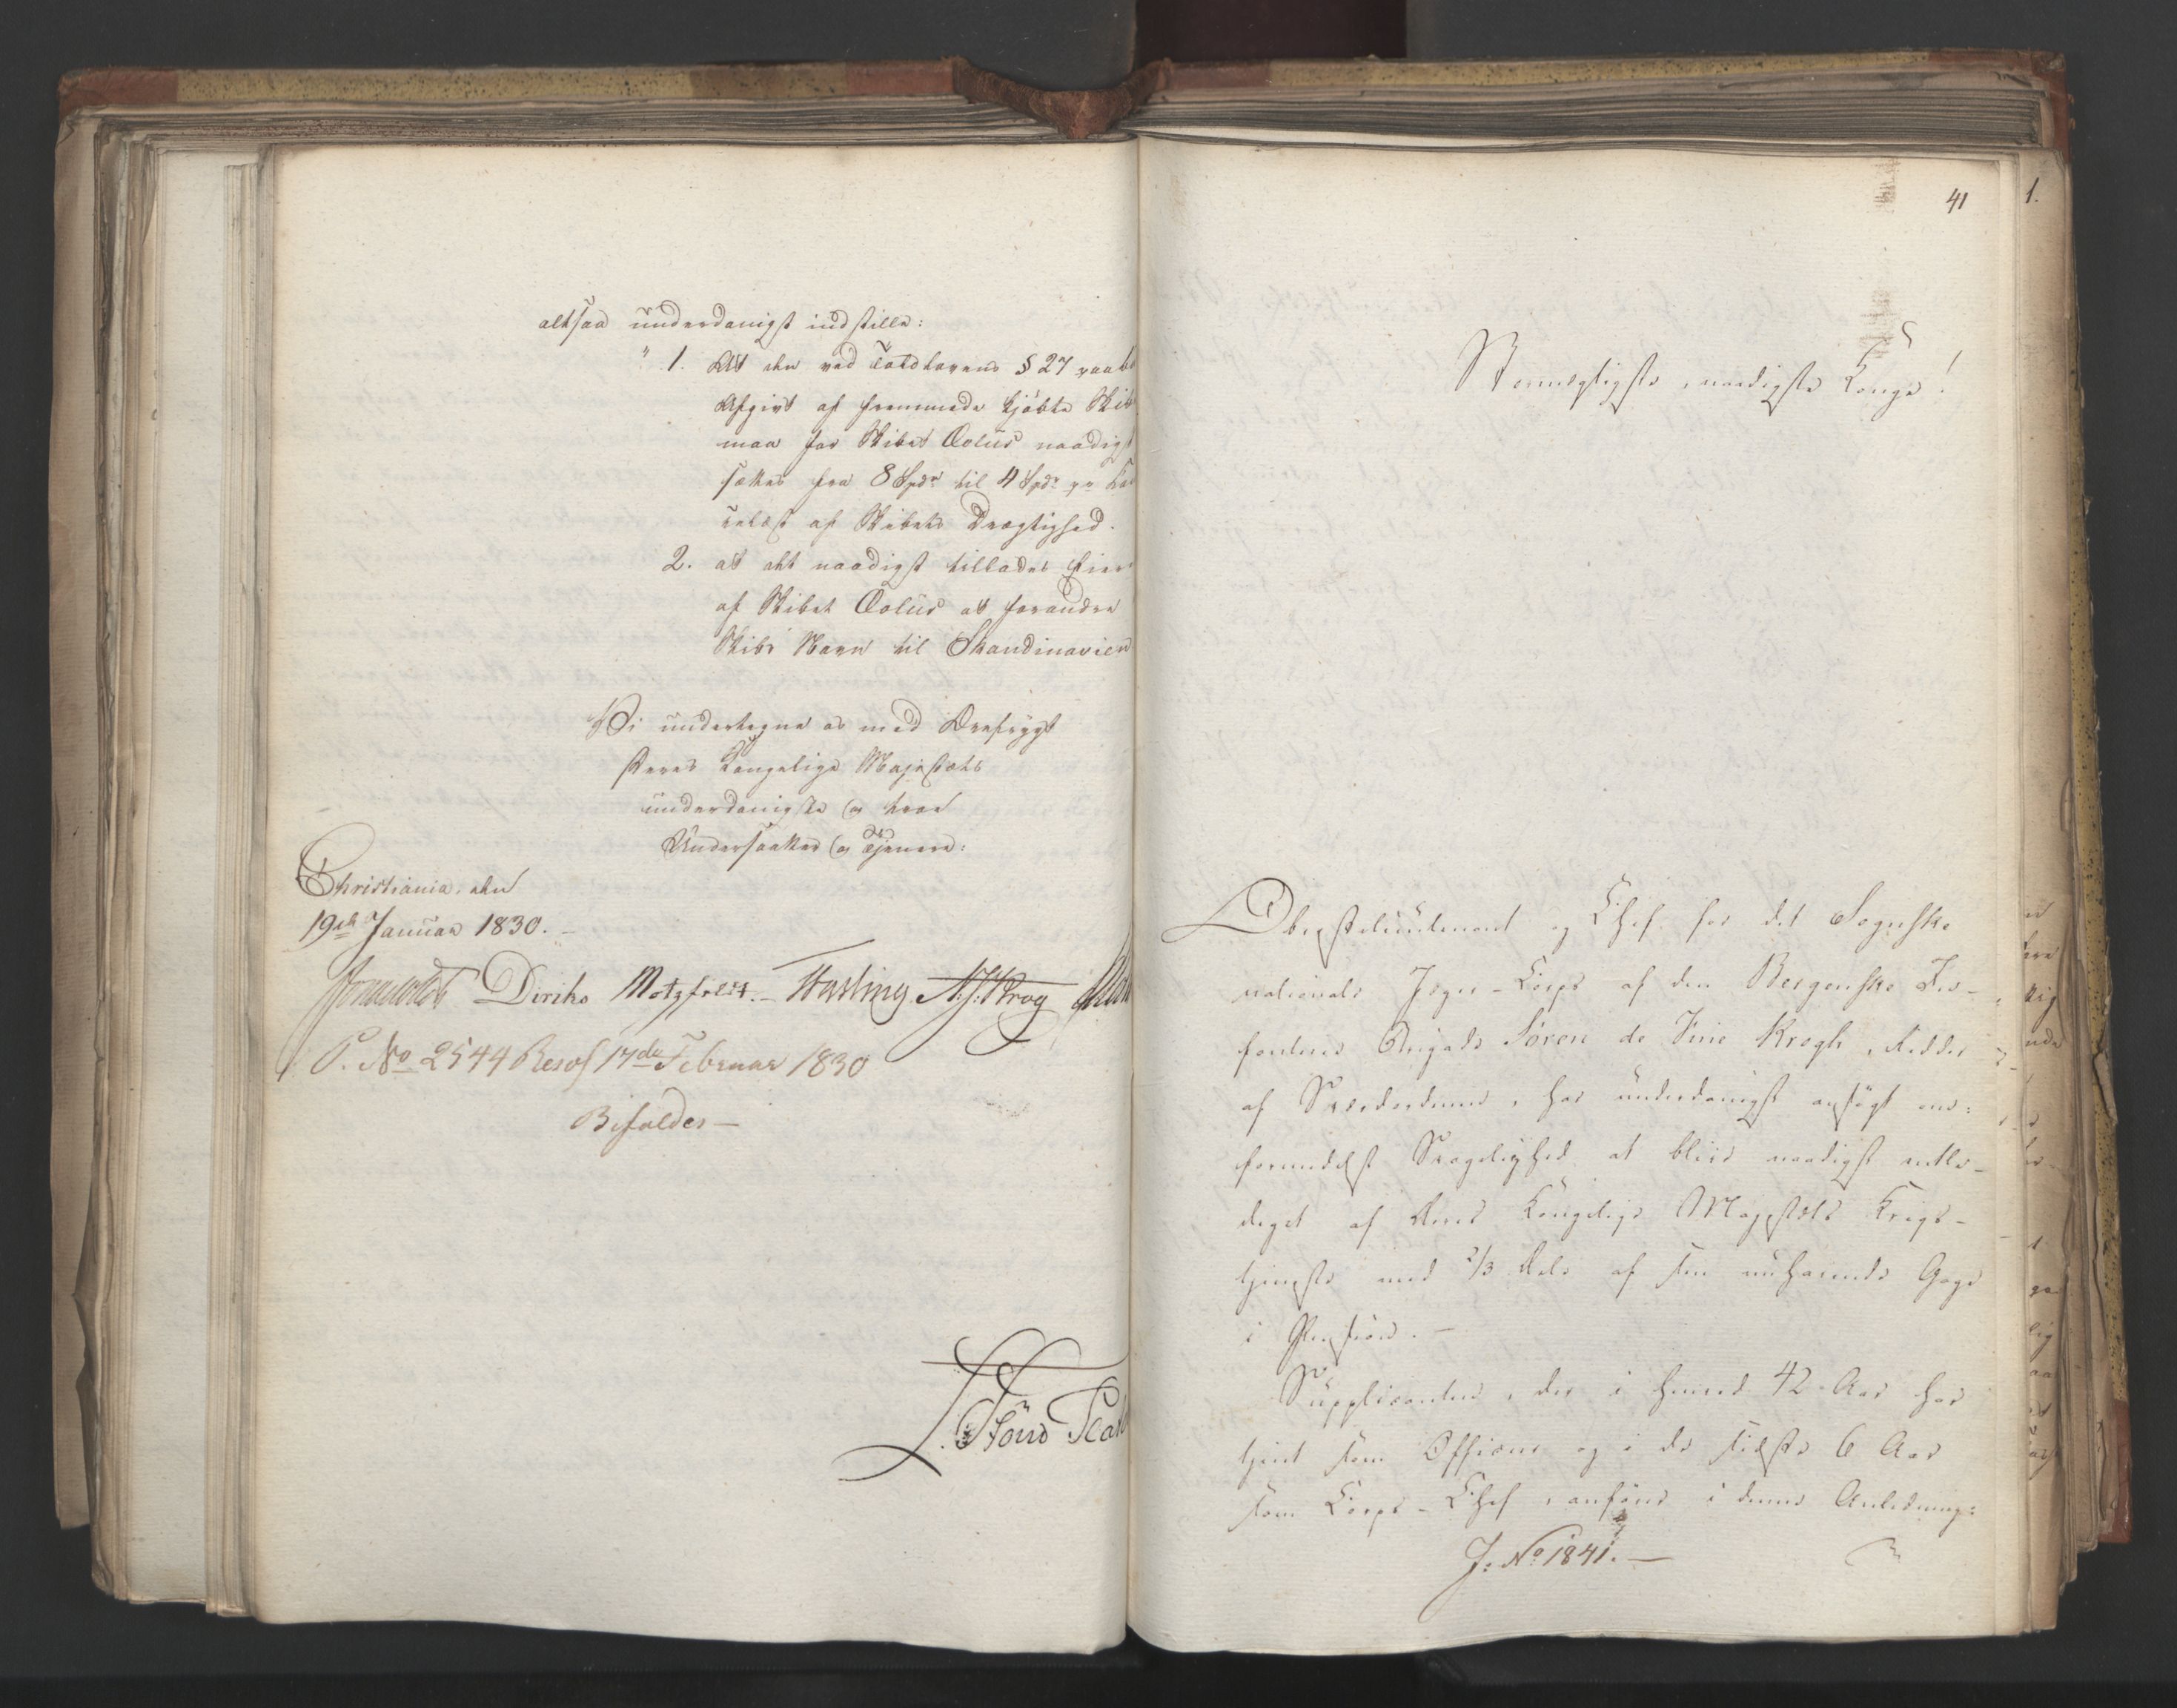 altsaa underdanigst indstille:
" 1. At den ved Toldlovens § 27 paabu
Afgivt af fremmede kjøbte Skib
maa for Skibet Æolus naadigst
sættes fra 8 Spdr til 4 Spdr pr Kom
relæst af Skibets Drægtighed.
2. at det naadigst tillades Eier
af Skibet Æolus at forandre
Skibs Navn til Skandinavien
Vi undertegne os med Ærefrygt
Deres Kongelige Majestæts
underdanigste og troe
Undersaatter og Tjenere:
Christiania, den
19de Januar 1830.
Diriks Motzfeldt. Hasling N.J. Krog
P. No 2544 Resol 17de Februar 1830
Bifaldes —
41
1.
Stormægtigste, naadigste Konge!
Oberstelieutenant og Chef for det Sognske
nationale Jæger-Corps af den Bergenske In-
fanteries Brigade Søren de Fine Krogh, Ridder
af Sværdordenen, har underdanigst ansøgt om:
formedelst Svagelighed at blive naadigst entle-
diget af Deres Kongelige Majestæts Krigs-
tjeneste med 2/3 Dele af sin nuhavende Gage
i Pension. —
Supplicanten, der i henved 42 Aar har
tjent som Officeer og i de sidste 6 Aar
som Corps-Chef, anfører i denne Anledning:
J: No 1841. —